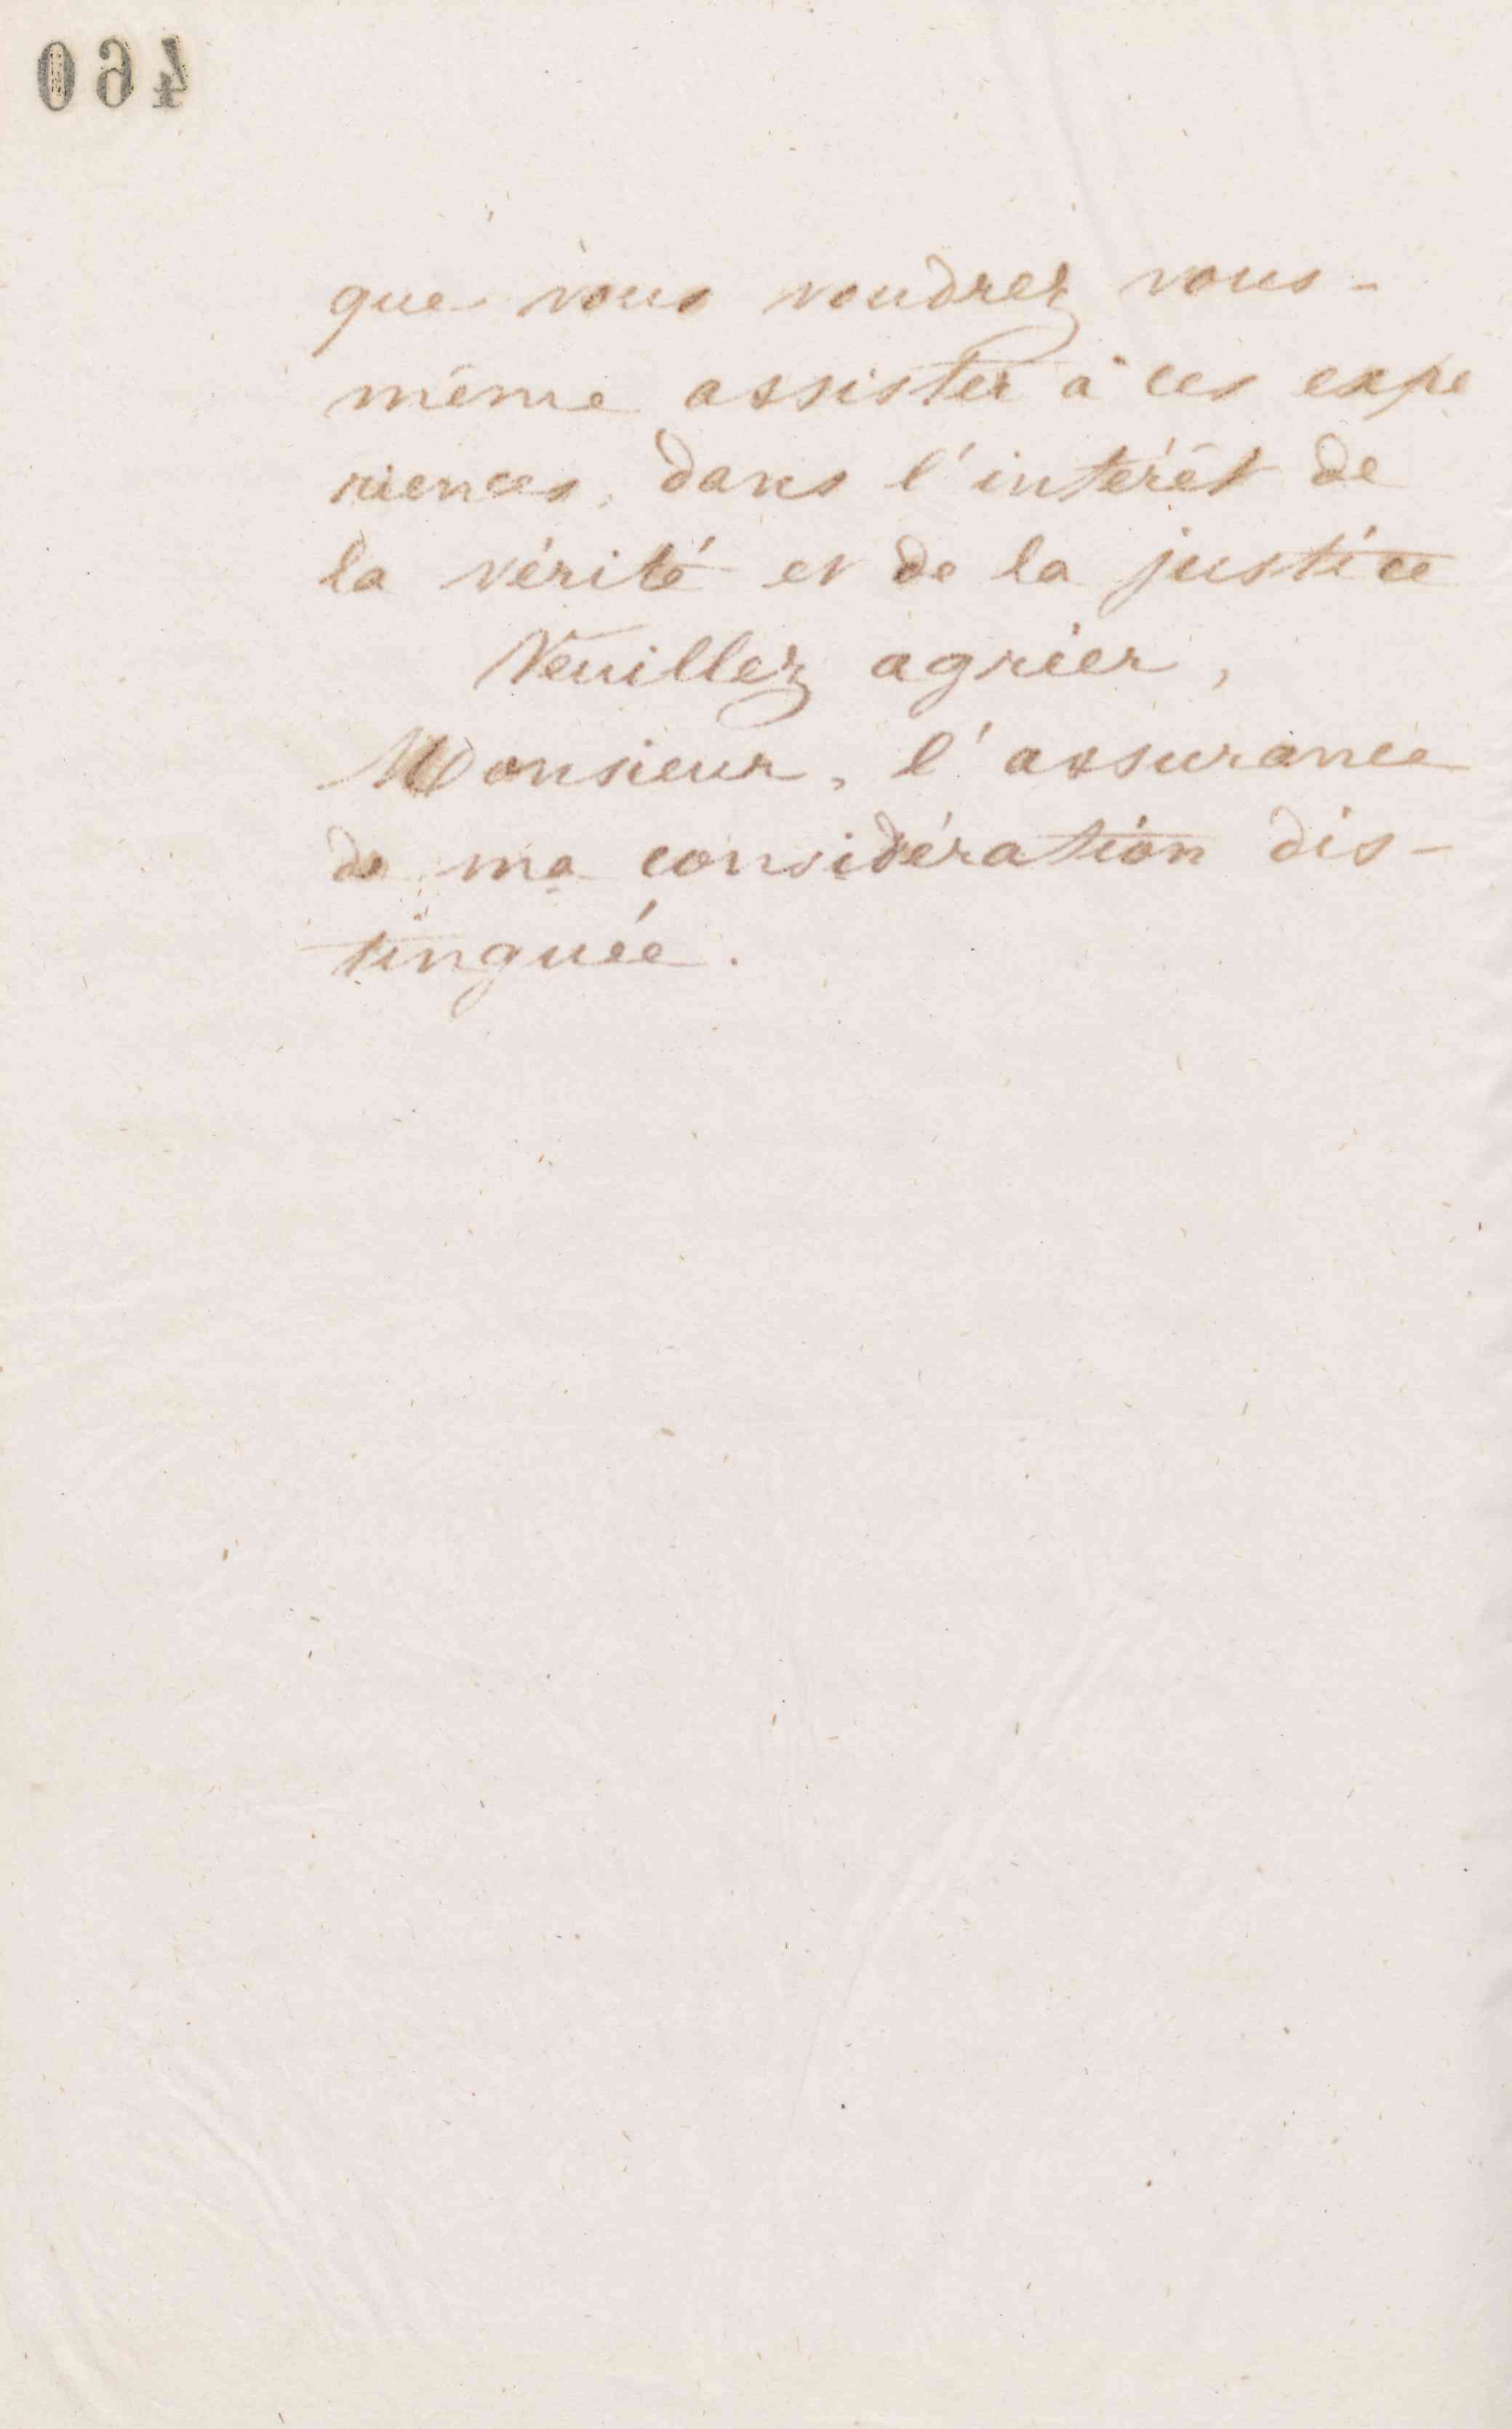 460
que vous voudrez vous-
même assister à ces expé
riences, dans l'intérêt de
la vérité et de la justice
Veuillez agréer,
Monsieur, l'assurance
de ma considération dis-
tinguée.